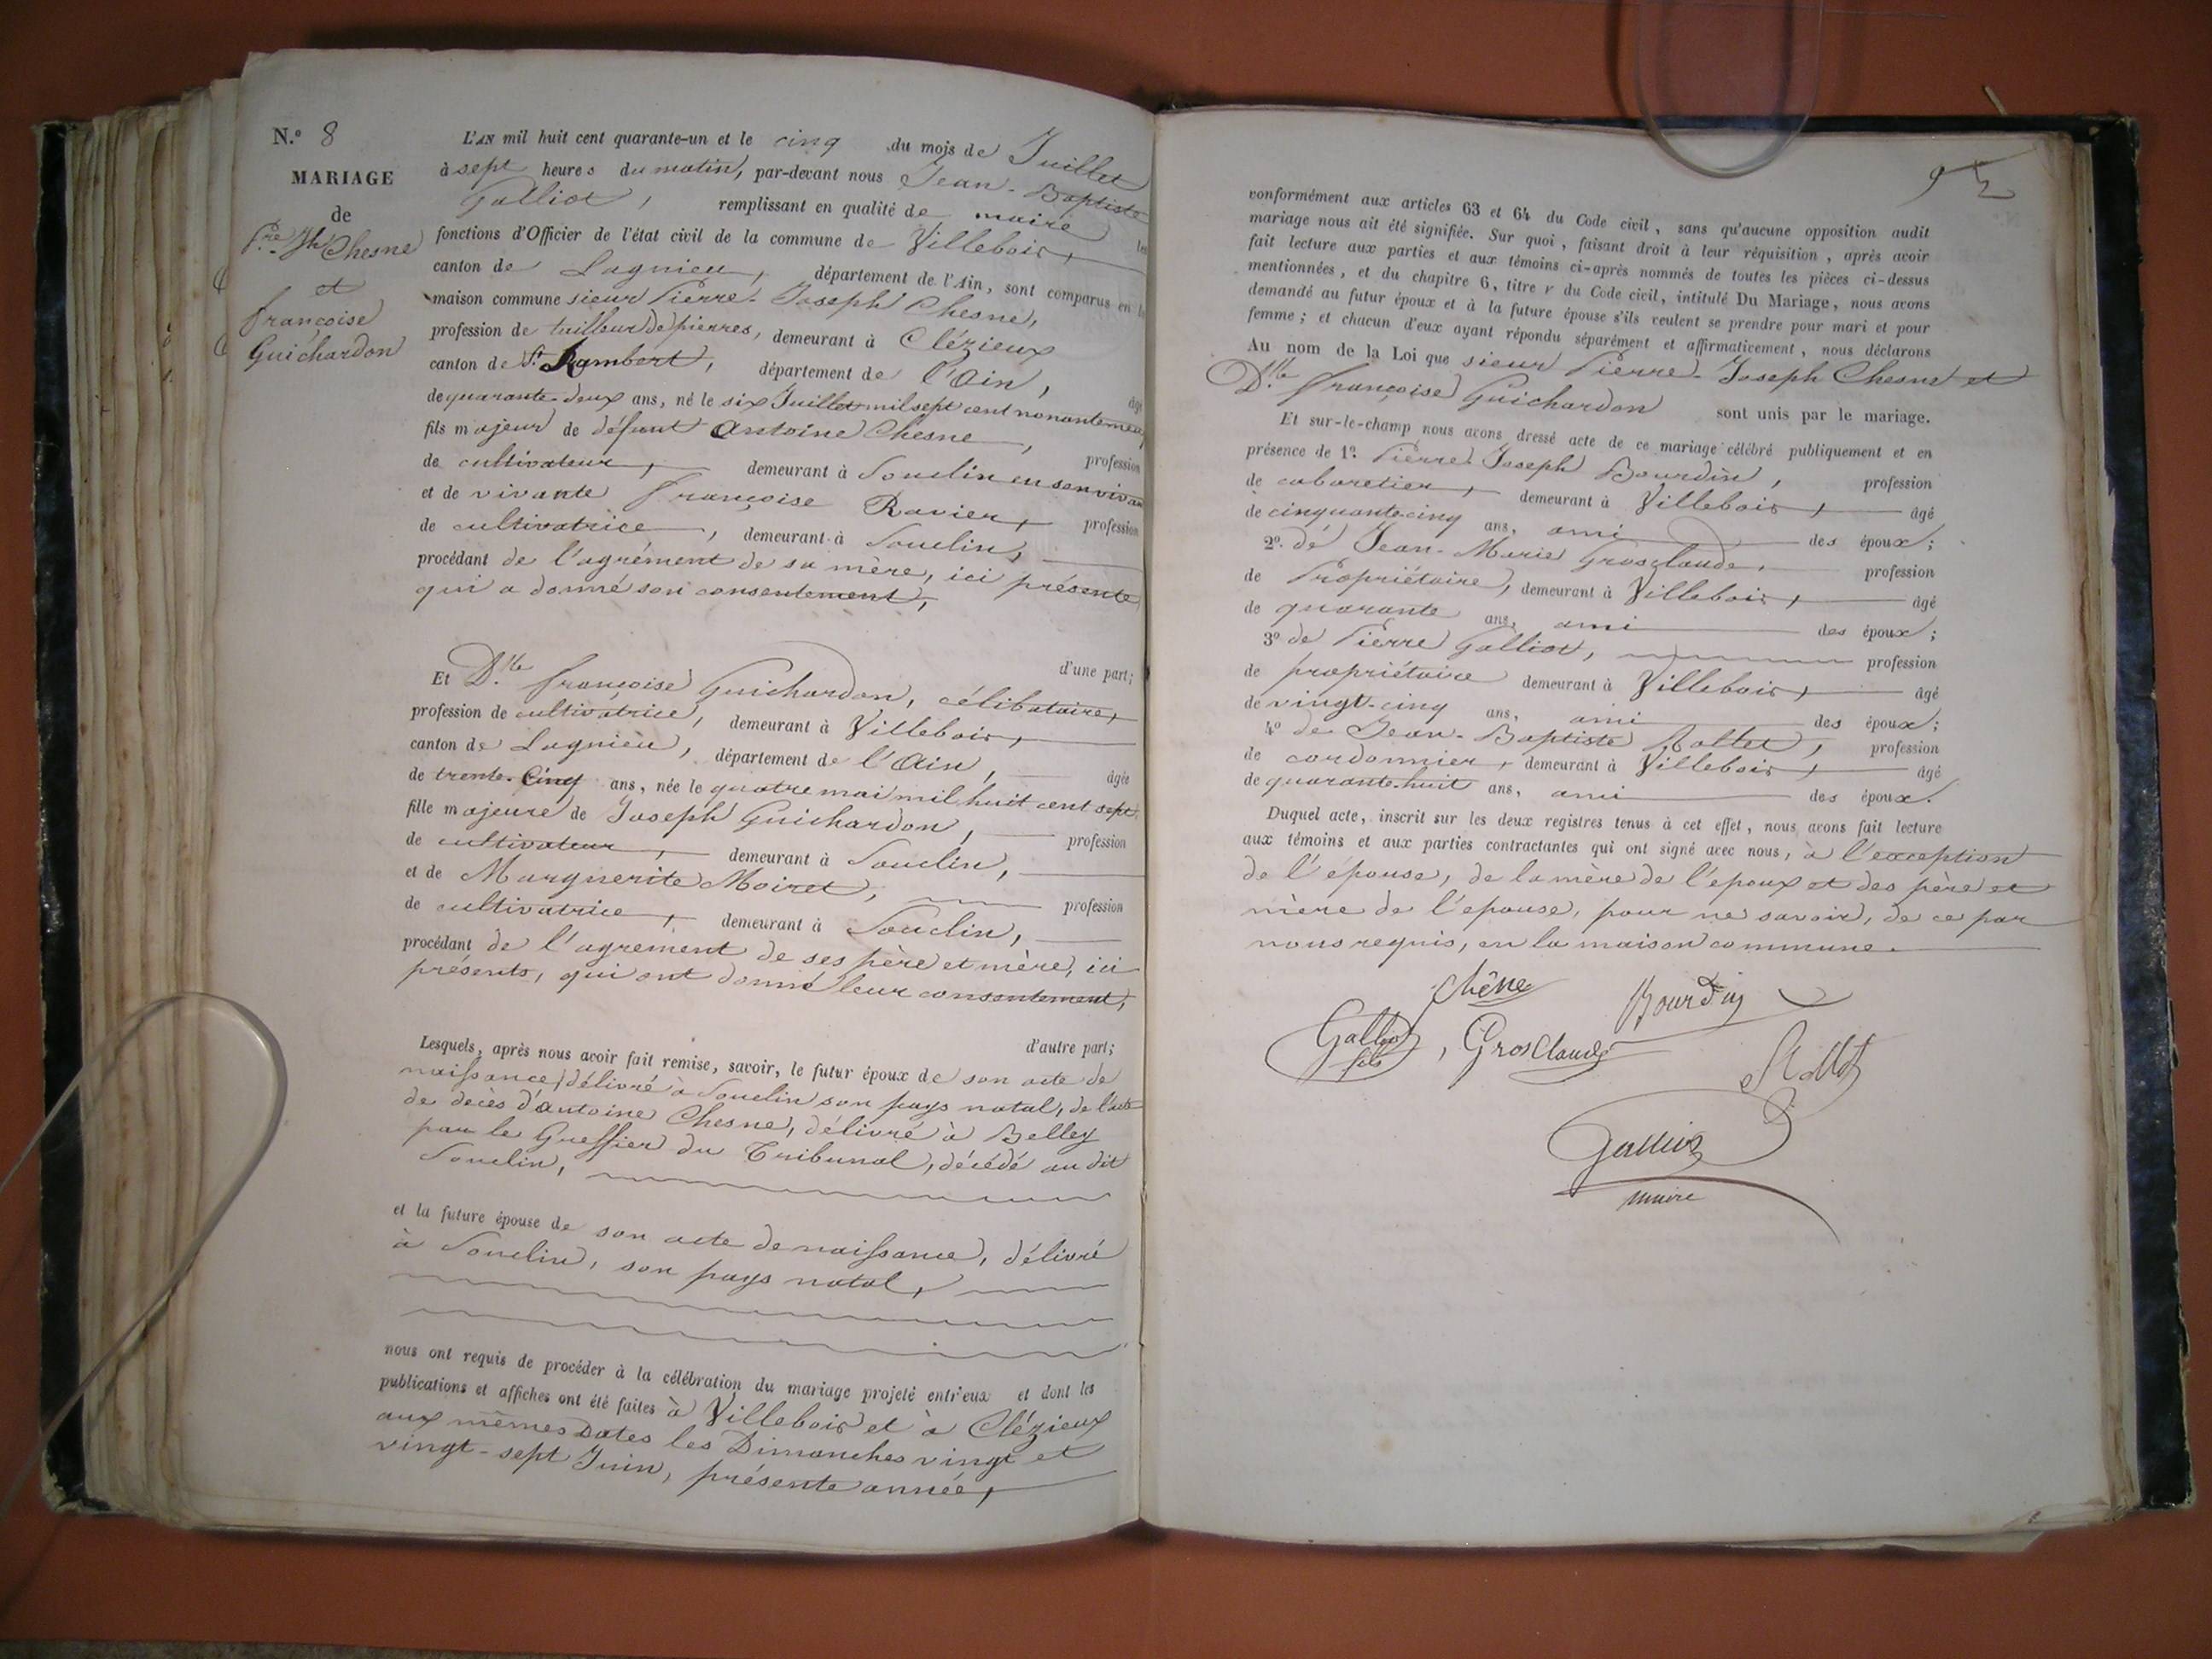 N.º 8
MARIAGE
de
P.re Jh Chesne
et
françoise
Guichardon
L'AN mil huit cent quarante-un et le cinq du mois de Juillet
à sept heures du matin, par-devant nous Jean-Baptiste
Galliot, remplissant en qualité de maire les
fonctions d'Officier de l'état civil de la commune de Villebois,
canton de Lagnieu, département de l'Ain, sont comparus en la
maison commune sieur Pierre-Joseph Chesne,
profession de tailleur de pierres, demeurant à Clézieux
canton de St. Rambert, département de l'Ain, âgé
de quarante-deux ans, né le six Juillet mil sept cent nonante neuf
fils majeur de défunt Antoine Chesne, profession
de cultivateur, demeurant à Souclin en son vivant
et de vivante françoise Ravier, profession
de cultivatrice, demeurant à Souclin,
procédant de l'agrément de sa mère, ici présente
qui a donné son consentement,
d'une part;
Et D.lle françoise Guichardon, célibataire,
profession de cultivatrice, demeurant à Villebois,
canton de Lagnieu, département de l'Ain, âgée
de trente-Cinq ans, née le quatre mai mil huit cent sept
fille majeure de Joseph Guichardon, profession
de cultivateur, demeurant à Souclin,
et de Marguerite Moiret, profession
de cultivatrice, demeurant à Souclin,
procédant de l'agrément de ses père et mère, ici
présents, qui ont donné leur consentement,
d'autre part;
Lesquels, après nous avoir fait remise, savoir, le futur époux de son acte de
naissance, délivré à Souclin son pays natal, de l'acte
de décès d'antoine Chesne, délivré à Belley
par le Greffier du Tribunal, décédé au dit
Souclin,
et la future épouse de son acte de naissance, délivré
à Souclin, son pays natal,
nous ont requis de procéder à la célébration du mariage projeté entr'eux et dont les
publications et affiches ont été faites à Villebois et à Clézieux
aux mêmes dates les Dimanches vingt et
vingt-sept Juin, présente année,
conformément aux articles 63 et 64 du Code civil, sans qu'aucune opposition audit
mariage nous ait été signifiée. Sur quoi, faisant droit à leur réquisition, après avoir
fait lecture aux parties et aux témoins ci-après nommés de toutes les pièces ci-dessus
mentionnées, et du chapitre 6, titre v du Code civil, intitulé Du Mariage, nous avons
demandé au futur époux et à la future épouse s'ils veulent se prendre pour mari et pour
femme; et chacun d'eux ayant répondu séparément et affirmativement, nous déclarons
Au nom de la Loi que sieur Pierre-Joseph Chesne et
D.lle françoise Guichardon sont unis par le mariage.
Et sur-le-champ nous avons dressé acte de ce mariage célébré publiquement et en
présence de 1º. Pierre-Joseph Bourdin, profession
de cabaretier, demeurant à Villebois, âgé
de cinquante-cinq ans, ami des époux;
2º. de Jean-Marie Grosclaude, profession
de Propriétaire, demeurant à Villebois, âgé
de quarante ans, ami des époux;
3º de Pierre Galliot, profession
de propriétaire demeurant à Villebois, âgé
de vingt-cinq ans, ami des époux;
4º de Jean-Baptiste Rollet, profession
de cordonnier, demeurant à Villebois, âgé
de quarante-huit ans, ami des époux.
Duquel acte, inscrit sur les deux registres tenus à cet effet, nous avons fait lecture
aux témoins et aux parties contractantes qui ont signé avec nous, à l'exception
de l'épouse, de la mère de l'epoux et des père et
mère de l'epouse, pour ne savoir, de ce par
nous requis, en la maison commune.
Chêne Bourdin
Galliot fils, Grosclaude
Rollet
Galliot
maire